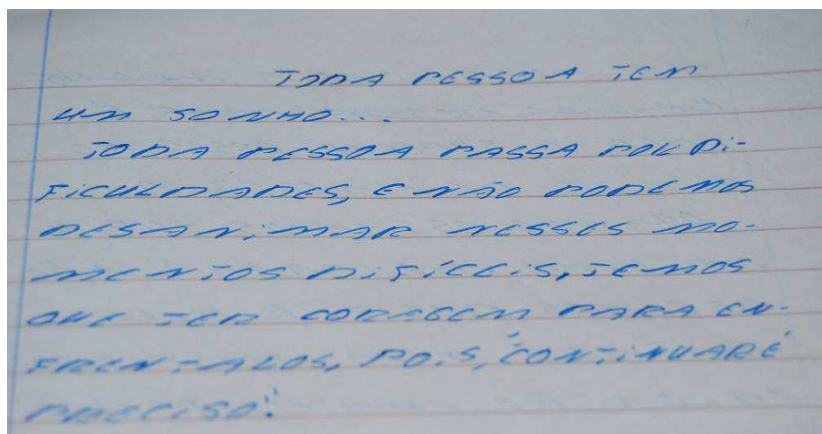 TODA PESSOA TEM
UM SONHO...
TODA PESSOA PASSA POR DI-
FICULDADES, E NÃO PODEMOS
DESANIMAR NESSES MO-
MENTOS DIFÍCEIS, TEMOS
QUE TER CORAGEM PARA EN-
FRENTALOS, POIS, "CONTINUAR É
PRECISO!"